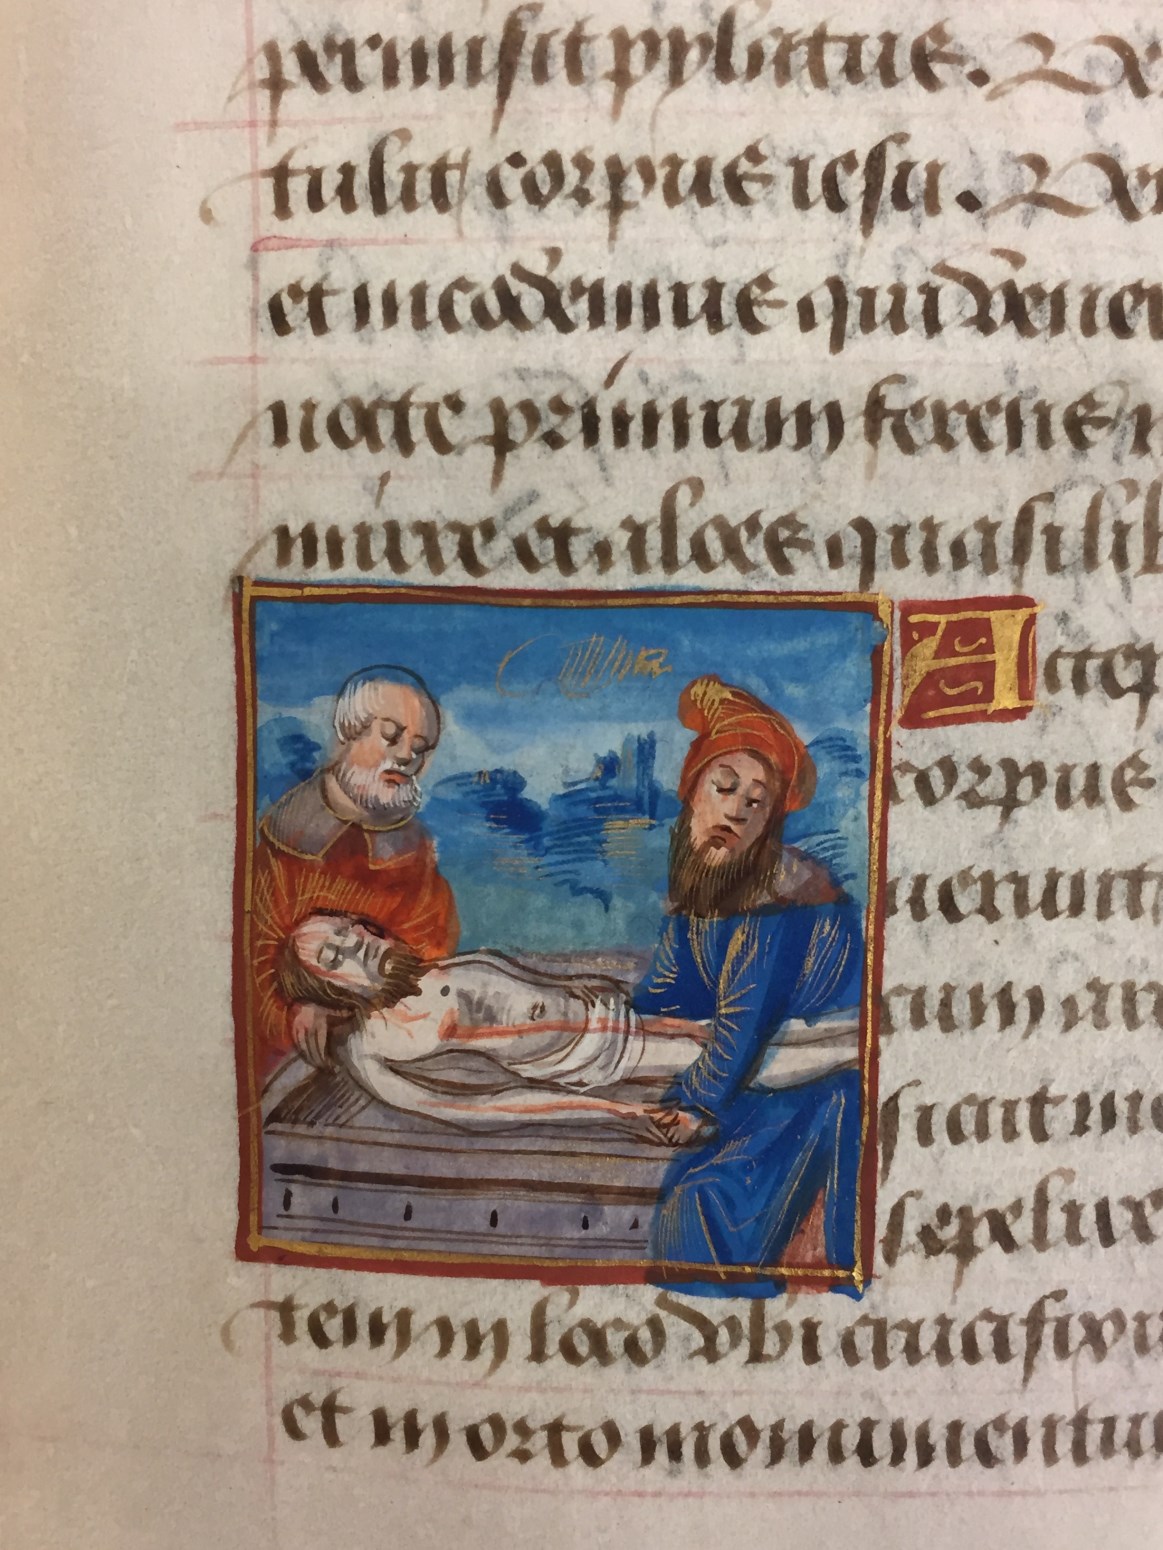 permisit pylatus. Ve
tulit corpus iesu. Ven
et nicodemus qui vener
nocte primum ferens m
mirre et aloes quasi lib
Accep
corpus
uerunt
cum aro
sicut mo
sepelire
tem in loco vbi crucifixu
et in orto monumentu